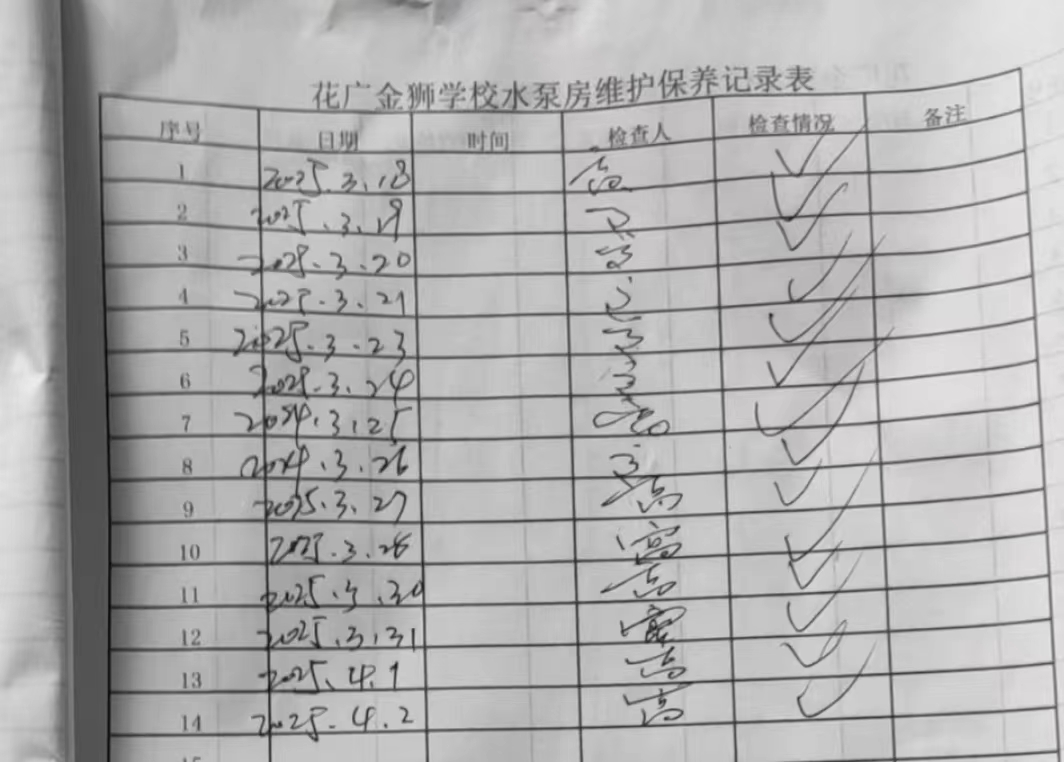 花广金狮学校水泵房维护保养记录表
序号 日期 时间 检查人 检查情况 备注
1 2025.3.18 高 ✓
2 2025.3.19 ✓
3 2025.3.20 ✓
4 2025.3.21 ✓
5 2025.3.23 ✓
6 2025.3.24 ✓
7 2024.3.25 ✓
8 2024.3.26 ✓
9 2025.3.27 高 ✓
10 2025.3.28 高 ✓
11 2025.3.30 高 ✓
12 2025.3.31 高 ✓
13 2025.4.1 高 ✓
14 2025.4.2 高 ✓
15